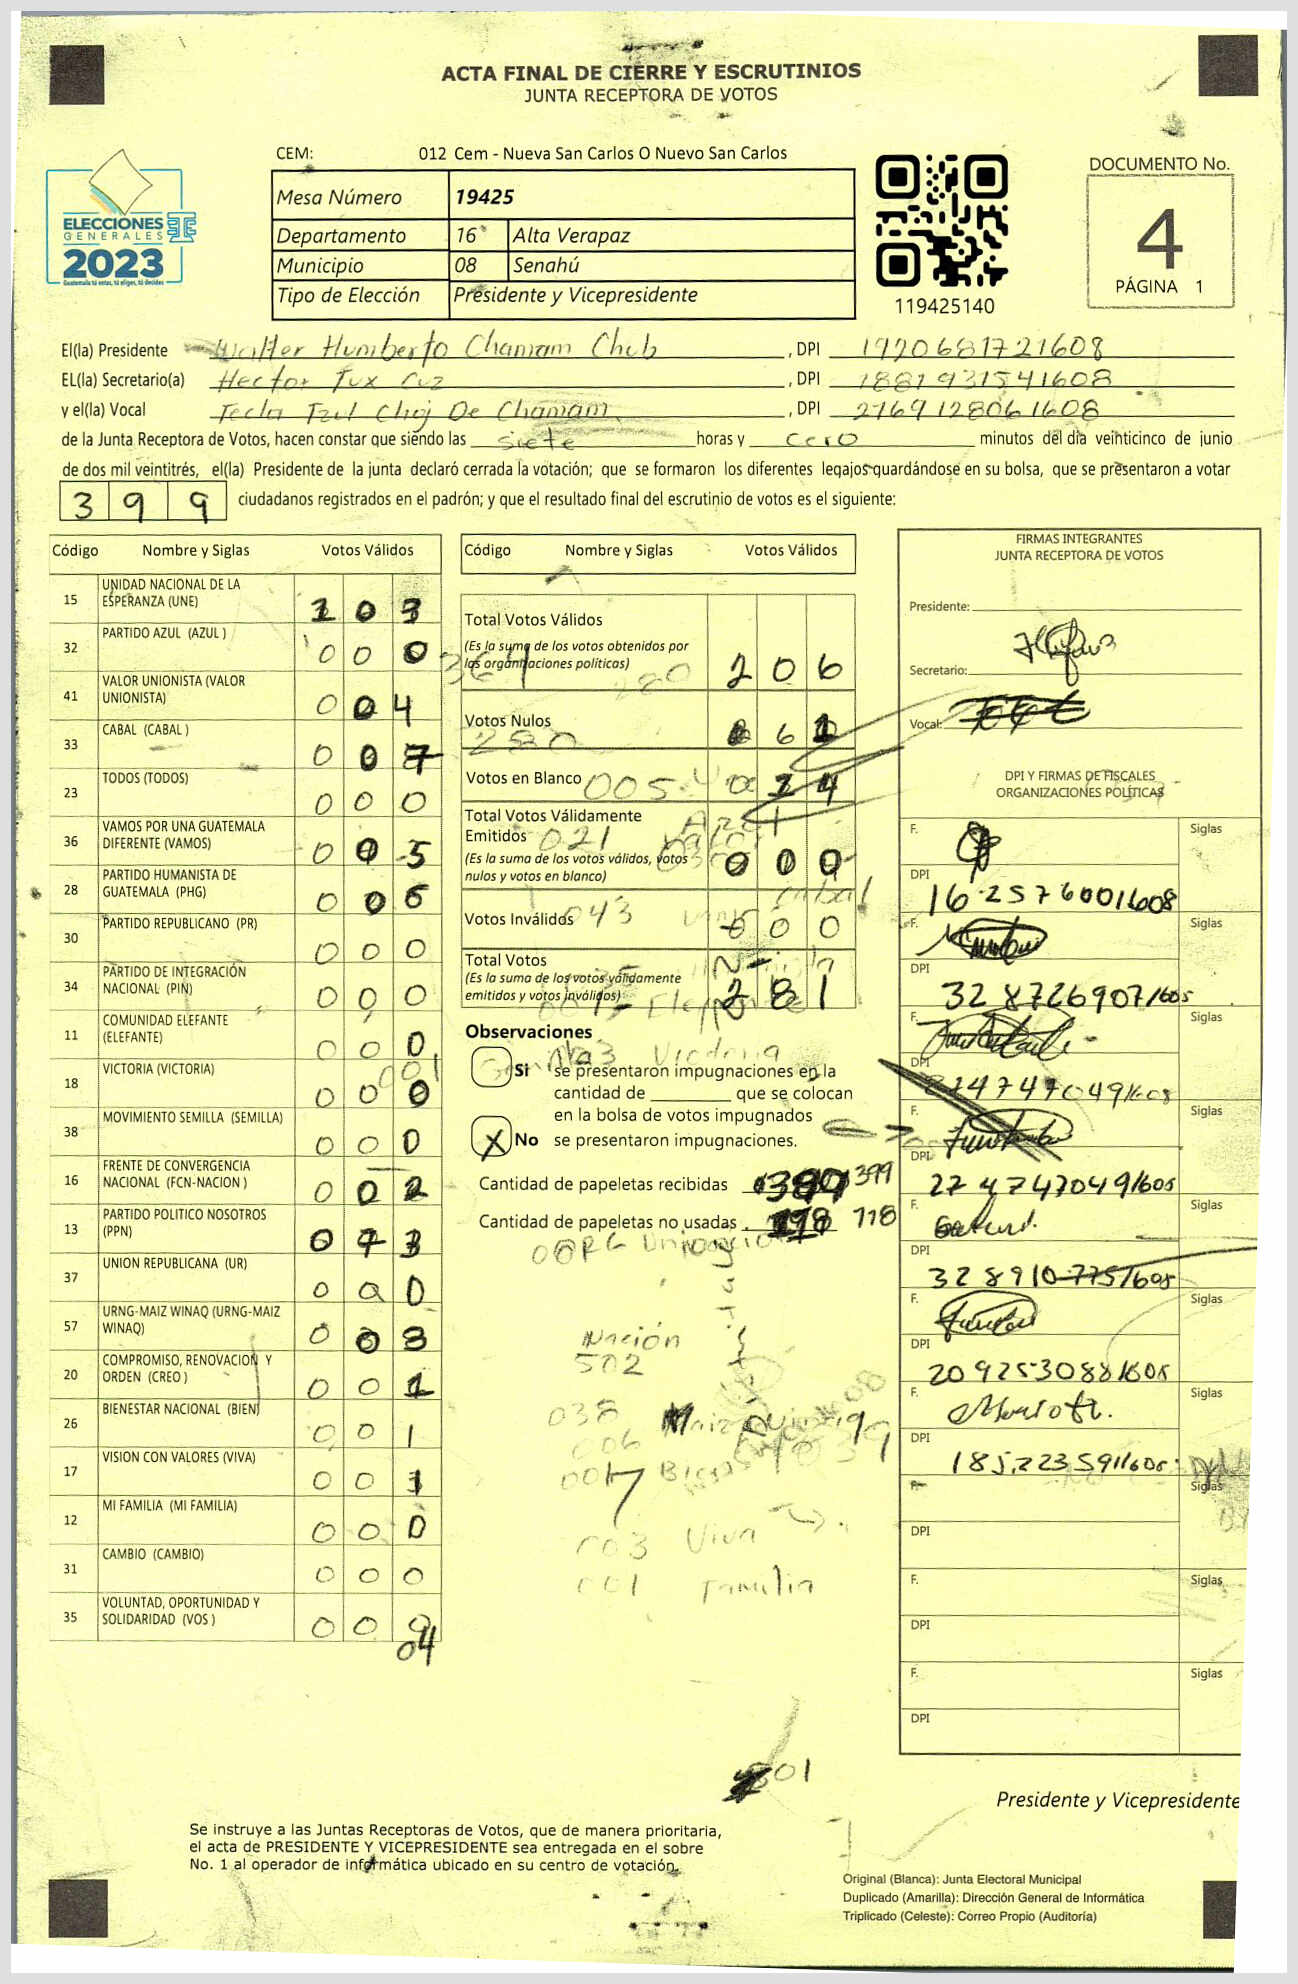 ACTA FINAL DE CIERRE Y ESCRUTINIOS
JUNTA RECEPTORA DE VOTOS
CEM: 012 Cem - Nueva San Carlos O Nuevo San Carlos
DOCUMENTO No.
4
PÁGINA 1
ELECCIONES
GENERALES
2023
Guatemala tú estas, tú eliges, tú decides
Mesa Número 19425
Departamento 16 Alta Verapaz
Municipio 08 Senahú
Tipo de Elección Presidente y Vicepresidente
119425140
El(la) Presidente Walter Humberto Chamam Chub , DPI 1920681721608
EL(la) Secretario(a) Hector Tux Cuz , DPI 1881931541608
y el(la) Vocal Tecla Tzul Choj De Chamam , DPI 2769128061608
de la Junta Receptora de Votos, hacen constar que siendo las siete horas y cero minutos del día veinticinco de junio
de dos mil veintitrés, el(la) Presidente de la junta declaró cerrada la votación; que se formaron los diferentes legajos guardándose en su bolsa, que se presentaron a votar
3 9 9 ciudadanos registrados en el padrón; y que el resultado final del escrutinio de votos es el siguiente:
Código Nombre y Siglas Votos Válidos
15 UNIDAD NACIONAL DE LA ESPERANZA (UNE) 1 0 3
32 PARTIDO AZUL (AZUL ) 0 0 0
41 VALOR UNIONISTA (VALOR UNIONISTA) 0 0 4
33 CABAL (CABAL ) 0 0 7
23 TODOS (TODOS) 0 0 0
36 VAMOS POR UNA GUATEMALA DIFERENTE (VAMOS) 0 0 5
28 PARTIDO HUMANISTA DE GUATEMALA (PHG) 0 0 6
30 PARTIDO REPUBLICANO (PR) 0 0 0
34 PARTIDO DE INTEGRACIÓN NACIONAL (PIN) 0 0 0
11 COMUNIDAD ELEFANTE (ELEFANTE) 0 0 0
18 VICTORIA (VICTORIA) 0 0 0
38 MOVIMIENTO SEMILLA (SEMILLA) 0 0 0
16 FRENTE DE CONVERGENCIA NACIONAL (FCN-NACION ) 0 0 2
13 PARTIDO POLITICO NOSOTROS (PPN) 0 7 3
37 UNION REPUBLICANA (UR) 0 0 0
57 URNG-MAIZ WINAQ (URNG-MAIZ WINAQ) 0 0 3
20 COMPROMISO, RENOVACION Y ORDEN (CREO ) 0 0 1
26 BIENESTAR NACIONAL (BIEN) 0 0 1
17 VISION CON VALORES (VIVA) 0 0 1
12 MI FAMILIA (MI FAMILIA) 0 0 0
31 CAMBIO (CAMBIO) 0 0 0
35 VOLUNTAD, OPORTUNIDAD Y SOLIDARIDAD (VOS ) 0 0 0
04
Código Nombre y Siglas Votos Válidos
Total Votos Válidos
(Es la suma de los votos obtenidos por
las organizaciones políticas) 2 0 6
364
280
Votos Nulos 6 1
280
Votos en Blanco 0 1 4
005
Total Votos Válidamente
Emitidos 021
(Es la suma de los votos válidos, votos
nulos y votos en blanco) 0 0 0
Votos Inválidos 0 0 0
043
Total Votos
(Es la suma de los votos válidamente
emitidos y votos inválidos) 2 8 1
Observaciones
Si se presentaron impugnaciones en la
cantidad de ________ que se colocan
en la bolsa de votos impugnados
X No se presentaron impugnaciones.
Cantidad de papeletas recibidas 399
Cantidad de papeletas no usadas 118
Nación
502
038
006
003 Viva
001 Familia
001
FIRMAS INTEGRANTES
JUNTA RECEPTORA DE VOTOS
Presidente:
Secretario:
Vocal:
DPI Y FIRMAS DE FISCALES
ORGANIZACIONES POLÍTICAS
F. Siglas
DPI 162576001608
F. Siglas
DPI 3287269071605
F. Siglas
DPI 2747470491608
F. Siglas
DPI 2747470491605
F. Siglas
DPI 3289107751605
F. Siglas
DPI 2092530881605
F. Siglas
DPI 1852235911605
F. Siglas
DPI
F. Siglas
DPI
F. Siglas
DPI
Presidente y Vicepresidente
Se instruye a las Juntas Receptoras de Votos, que de manera prioritaria,
el acta de PRESIDENTE Y VICEPRESIDENTE sea entregada en el sobre
No. 1 al operador de informática ubicado en su centro de votación.
Original (Blanca): Junta Electoral Municipal
Duplicado (Amarilla): Dirección General de Informática
Triplicado (Celeste): Correo Propio (Auditoría)